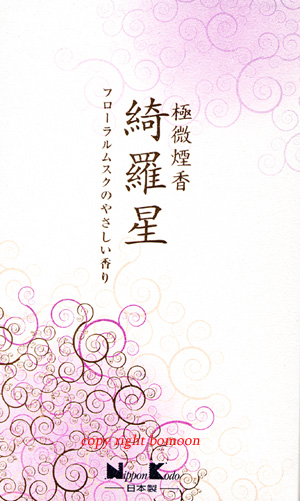 極微煙香
綺羅星
フローラルムスクのやさしい香り
copy right bomoon
Nippon Kodo
日本製